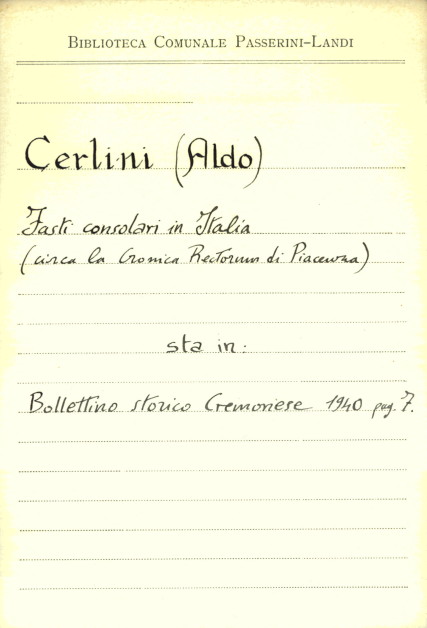 Biblioteca Comunale Passerini-Landi
Cerlini (Aldo)
Fasti consolari in Italia
(circa la Cronica Rectorum di Piacenza)
sta in:
Bollettino storico Cremonese 1940 pag. 7.